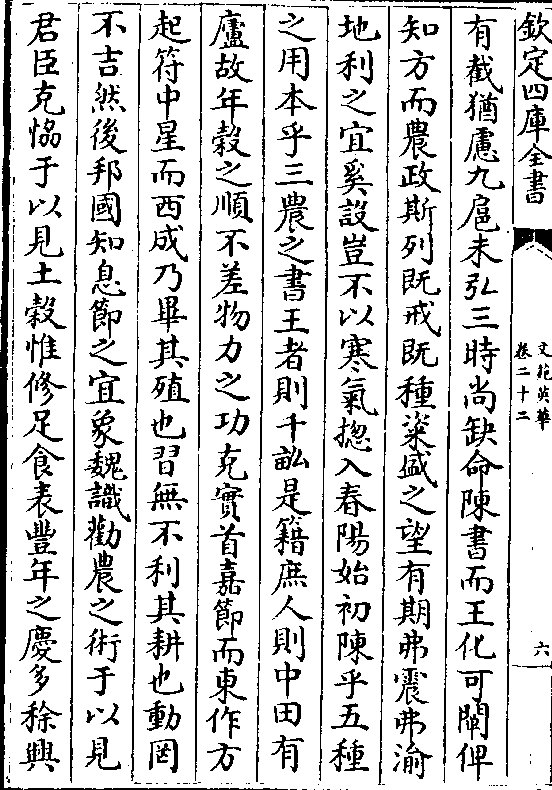 欽定四庫全書
文苑英華
卷二十二
六
有截猶慮九扈未弘三時尚缺命陳書而王化可闡俾
知方而農政斯列既戒既種粢盛之望有期弗震弗渝
地利之宜奚設豈不以寒氣揔入春陽始初陳乎五種
之用本乎三農之書王者則千畝是籍庶人則中田有
廬故年穀之順不差物力之功克實首嘉節而東作方
起符中星而西成乃畢其殖也習無不利其耕也動罔
不吉然後邦國知息節之宜象魏識勸農之術于以見
君臣克恊于以見土穀惟修足食表豐年之慶多稌興